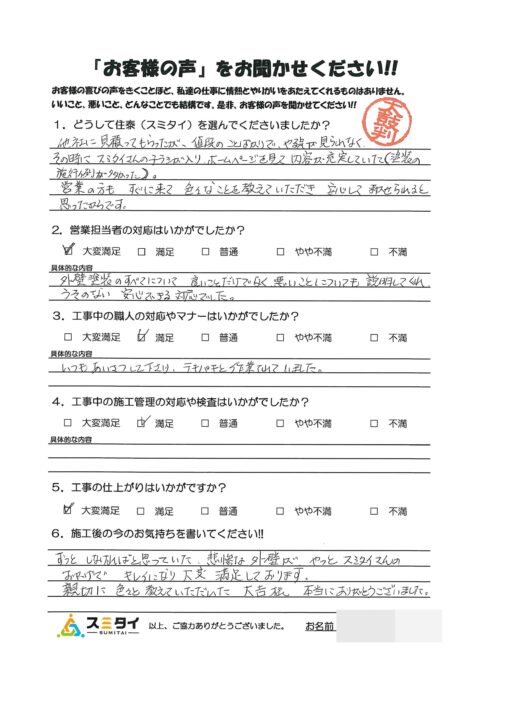 「お客様の声」をお聞かせください!!
お客様の喜びの声をきくことほど、私達の仕事に情熱とやりがいをあたえてくれるものはありません。
いいこと、悪いこと、どんなことでも結構です。是非、お客様の声を聞かせてください!!
太鼓判
1．どうして住泰（スミタイ）を選んでくださいましたか？
他社に見積ってもらったが、値段のことばかりで、やる気が見られなく
その時に スミタイさんのチラシが入り、ホームページを見て 内容が充実していた(塗装の
施行例が多かった)。
営業の方も すぐに来て 色々なことを教えていただき 安心して まかせられると
思ったからです。
2．営業担当者の対応はいかがでしたか？
☑ 大変満足 □ 満足 □ 普通 □ やや不満 □ 不満
具体的な内容
外壁塗装のすべてについて 良いことだけでなく 悪いことについても 説明してくれ
うそのない 安心できる 対応でした。
3．工事中の職人の対応やマナーはいかがでしたか？
□ 大変満足 ☑ 満足 □ 普通 □ やや不満 □ 不満
具体的な内容
いつも あいさつして下さり、テキパキと作業されていました。
4．工事中の施工管理の対応や検査はいかがでしたか？
□ 大変満足 ☑ 満足 □ 普通 □ やや不満 □ 不満
具体的な内容
5．工事の仕上がりはいかがですか？
☑ 大変満足 □ 満足 □ 普通 □ やや不満 □ 不満
6．施工後の今のお気持ちを書いてください!!
ずっと しなければと思っていた、悲惨な 外壁が やっと スミタイさんの
おかげで キレイになり 大変 満足しております。
親切に 色々と 教えていただいた 本当にありがとうございました。
スミタイ
SUMITAI
以上、ご協力ありがとうございました。
お名前